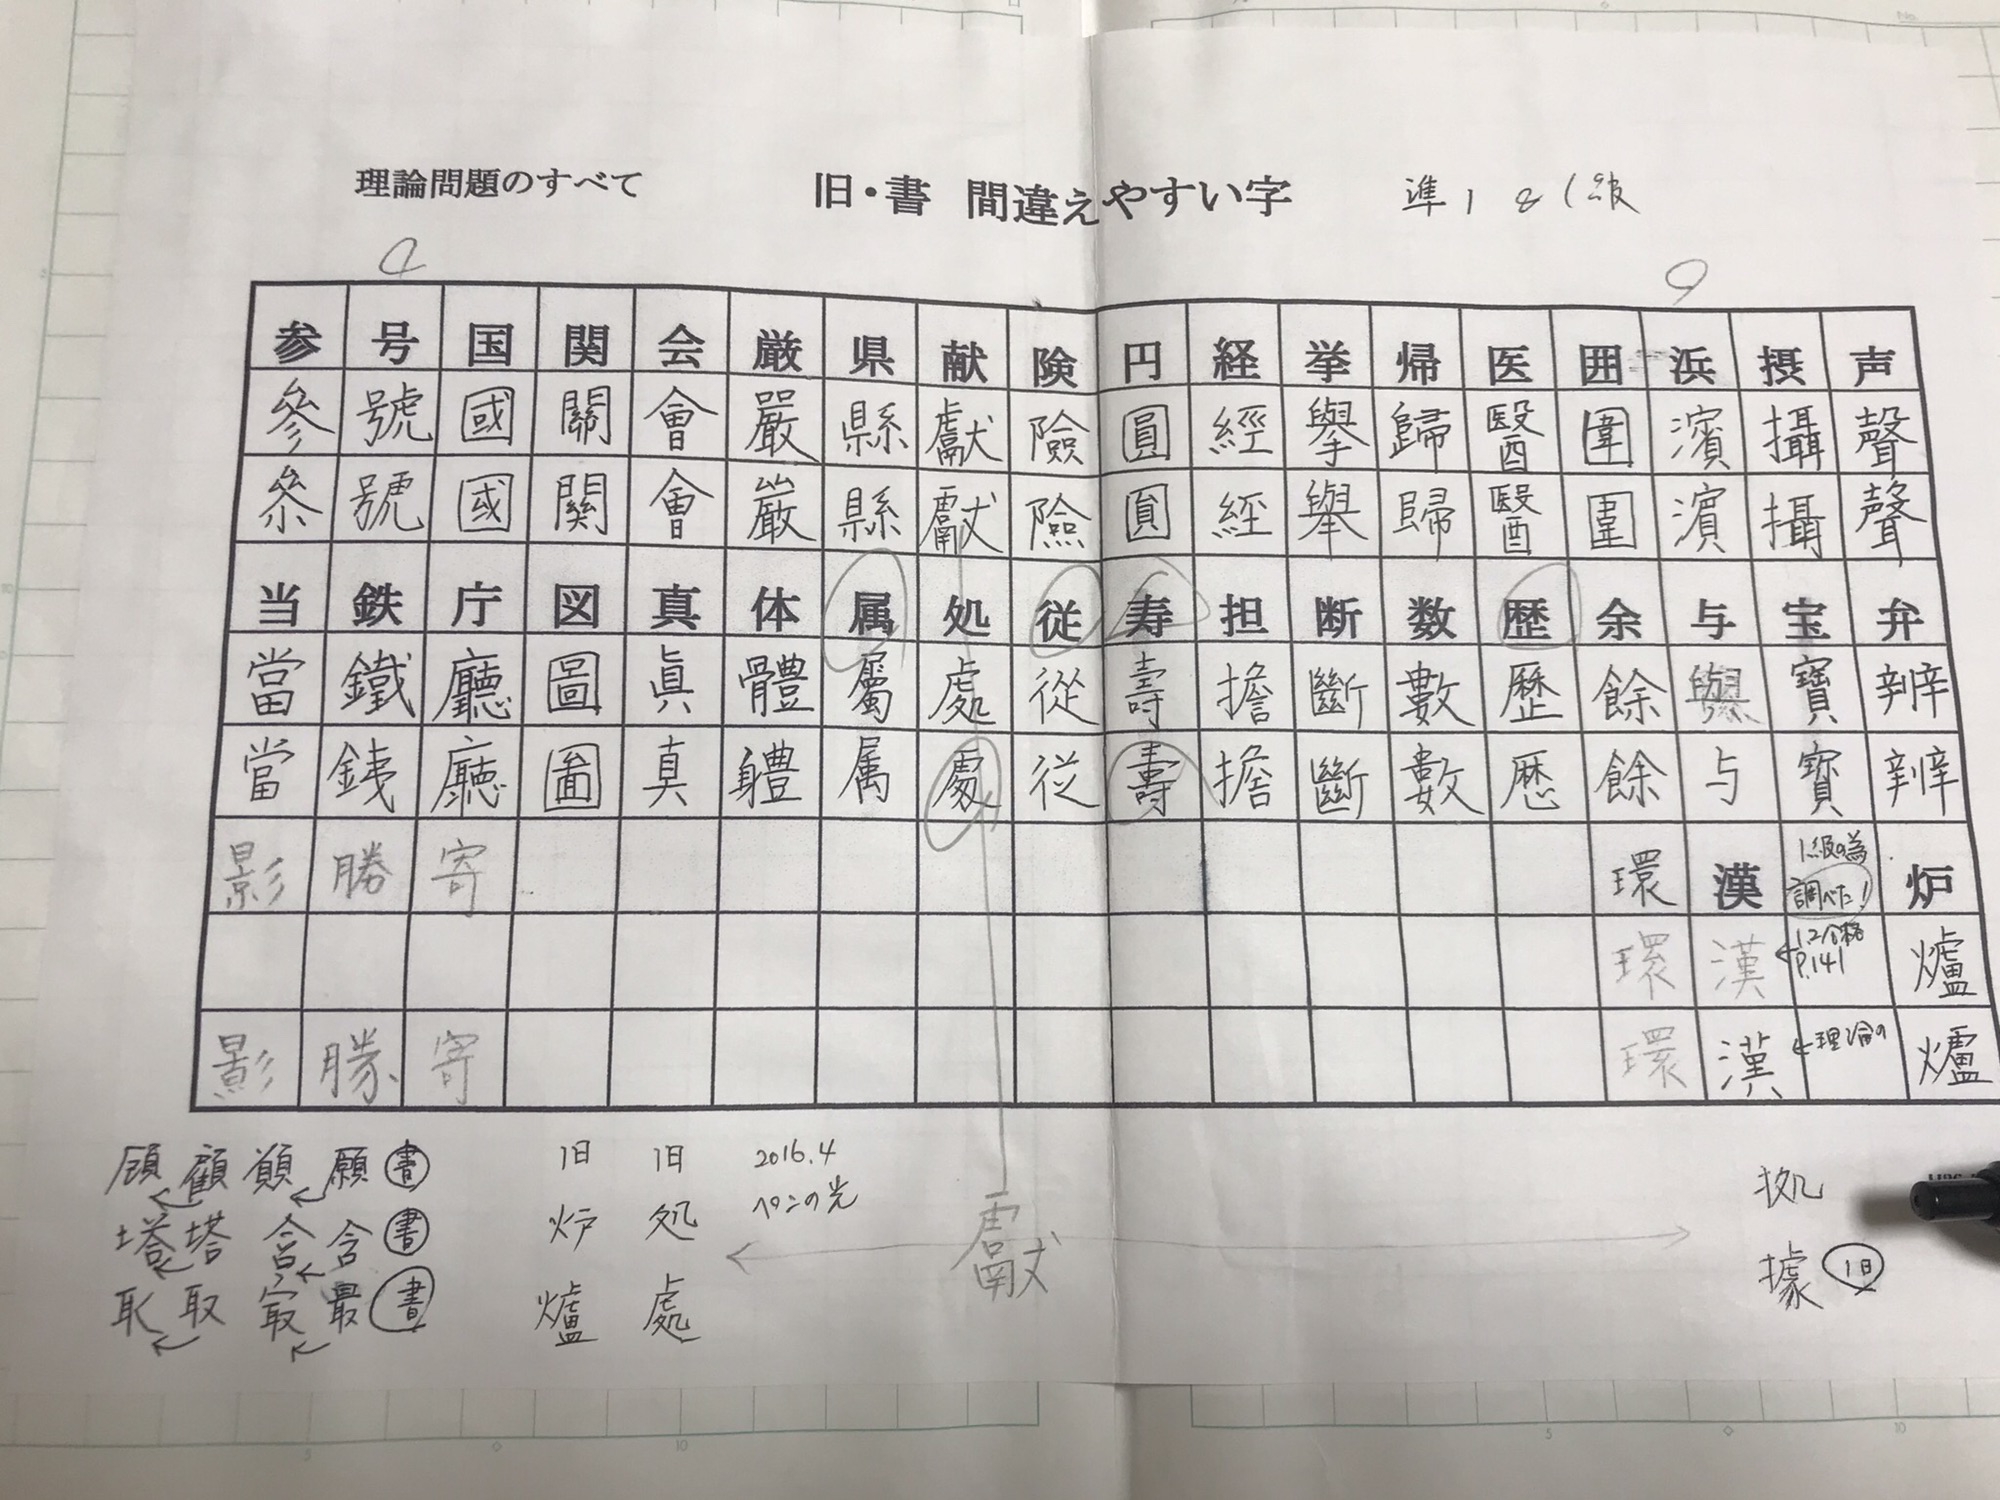 理論問題のすべて 旧・書 間違えやすい字 準1&1級
参 号 国 関 会 厳 県 献 険 円 経 挙 帰 医 囲 浜 摂 声
參 號 國 關 會 嚴 縣 獻 險 圓 經 擧 歸 醫 圍 濱 攝 聲
叅 號 國 関 會 巌 縣 獻 険 圎 経 舉 帰 醫 圍 濱 攝 聲
当 鉄 庁 図 真 体 属 処 従 寿 担 断 数 歴 余 与 宝 弁
當 鐵 廳 圖 眞 體 屬 處 從 壽 擔 斷 數 歷 餘 與 寶 辨
當 銕 廳 圗 真 軆 属 處 従 壽 擔 斷 數 歴 餘 与 寳 辨
影 勝 寄 環 漢 1級の為調べた! 炉
環 漢 ←12合格P.141 爐
影 勝 寄 環 漢 ←理論の 爐
顧 顧 願 願 書 旧 旧 2016.4
炉 処 ペンの光 献 拠
塔 塔 含 含 書
取 取 最 最 書 爐 處 據 旧